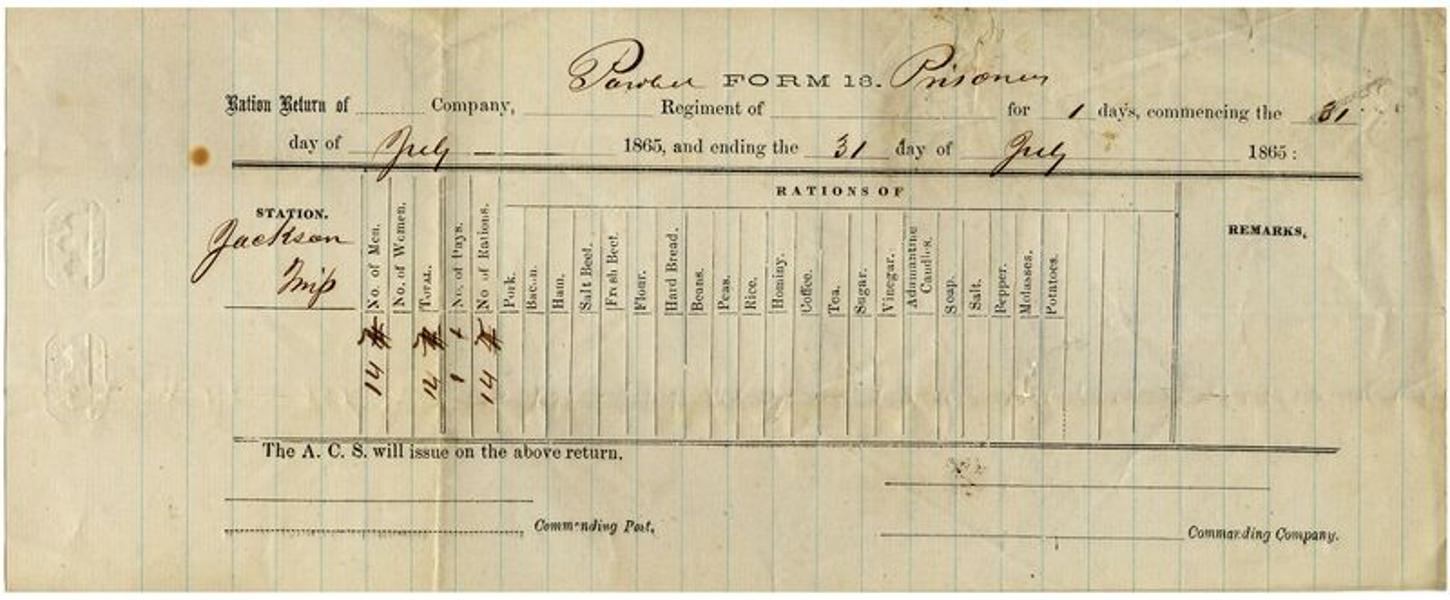 FORM 13. Prisoners
Ration Return of Company, Regiment of for 1 days, commencing the 31
day of July 1865, and ending the 31 day of July 1865:
RATIONS OF
STATION.
Jackson
Miss
No. of Men.
No. of Women.
TOTAL.
No. of Days.
No of Rations.
Pork.
Bacon.
Ham.
Salt Beef.
Fresh Beef.
Flour.
Hard Bread.
Beans.
Peas.
Rice.
Hominy.
Coffee.
Tea.
Sugar.
Vinegar.
Adamantine Candles.
Soap.
Salt.
Pepper.
Molasses.
Potatoes.
REMARKS,
1
14 14 1 14
The A. C. S. will issue on the above return.
Commending Post,
Commarding Company.